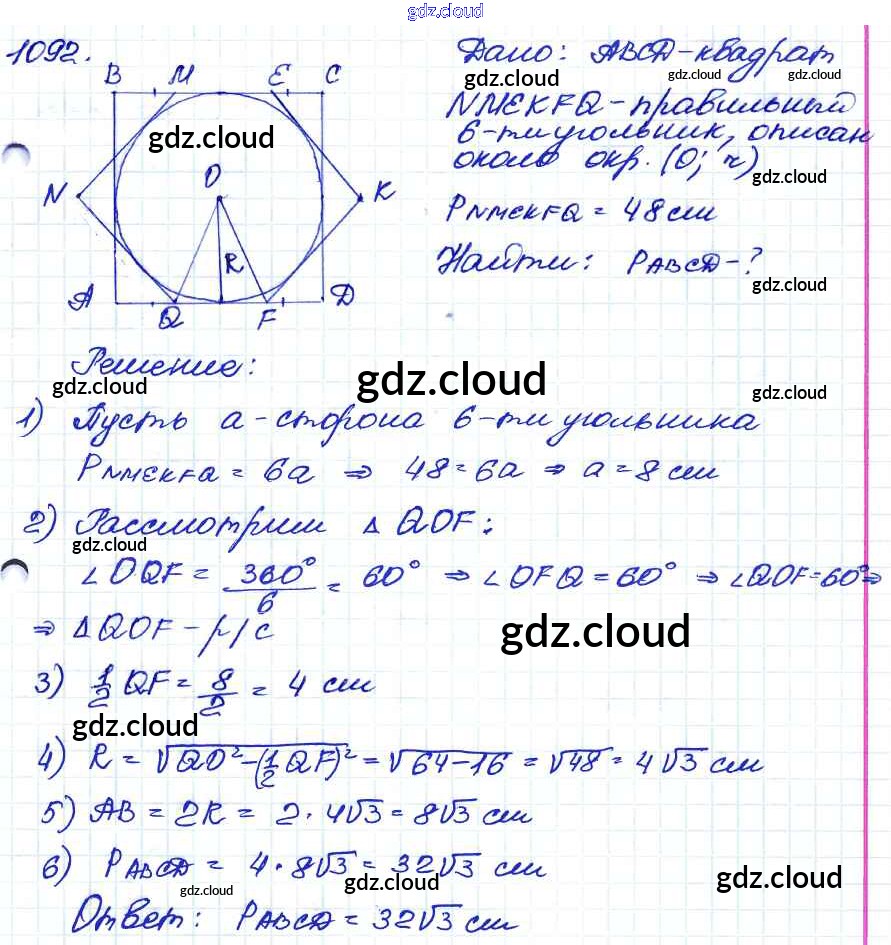 gdz.cloud
1092.
B M E C
N O K
R
A Q F D
Дано: ABCD-квадрат
NMEKFQ-правильный
6-тиугольник, описан
около окр. (O; r)
P NMEKFQ = 48 см
Найти: P ABCD-?
gdz.cloud
gdz.cloud
gdz.cloud
gdz.cloud
gdz.cloud
gdz.cloud
gdz.cloud
Решение:
gdz.cloud
gdz.cloud
gdz.cloud
1) Пусть a-сторона 6-тиугольника
P NMEKFQ = 6a ⇒ 48=6a ⇒ a=8 см
2) Рассмотрим △ QOF:
gdz.cloud
∠OQF = 360°/6 = 60° ⇒ ∠OFQ=60° ⇒ ∠QOF=60° ⇒
⇒ △QOF - р/с
gdz.cloud
3) 1/2 QF = 8/2 = 4 см
gdz.cloud
4) R = √QO²-(1/2 QF)² = √64-16 = √48 = 4√3 см
5) AB = 2R = 2·4√3 = 8√3 см
6) P ABCD = 4·8√3 = 32√3 см
gdz.cloud
gdz.cloud
gdz.cloud
Ответ: P ABCD = 32√3 см